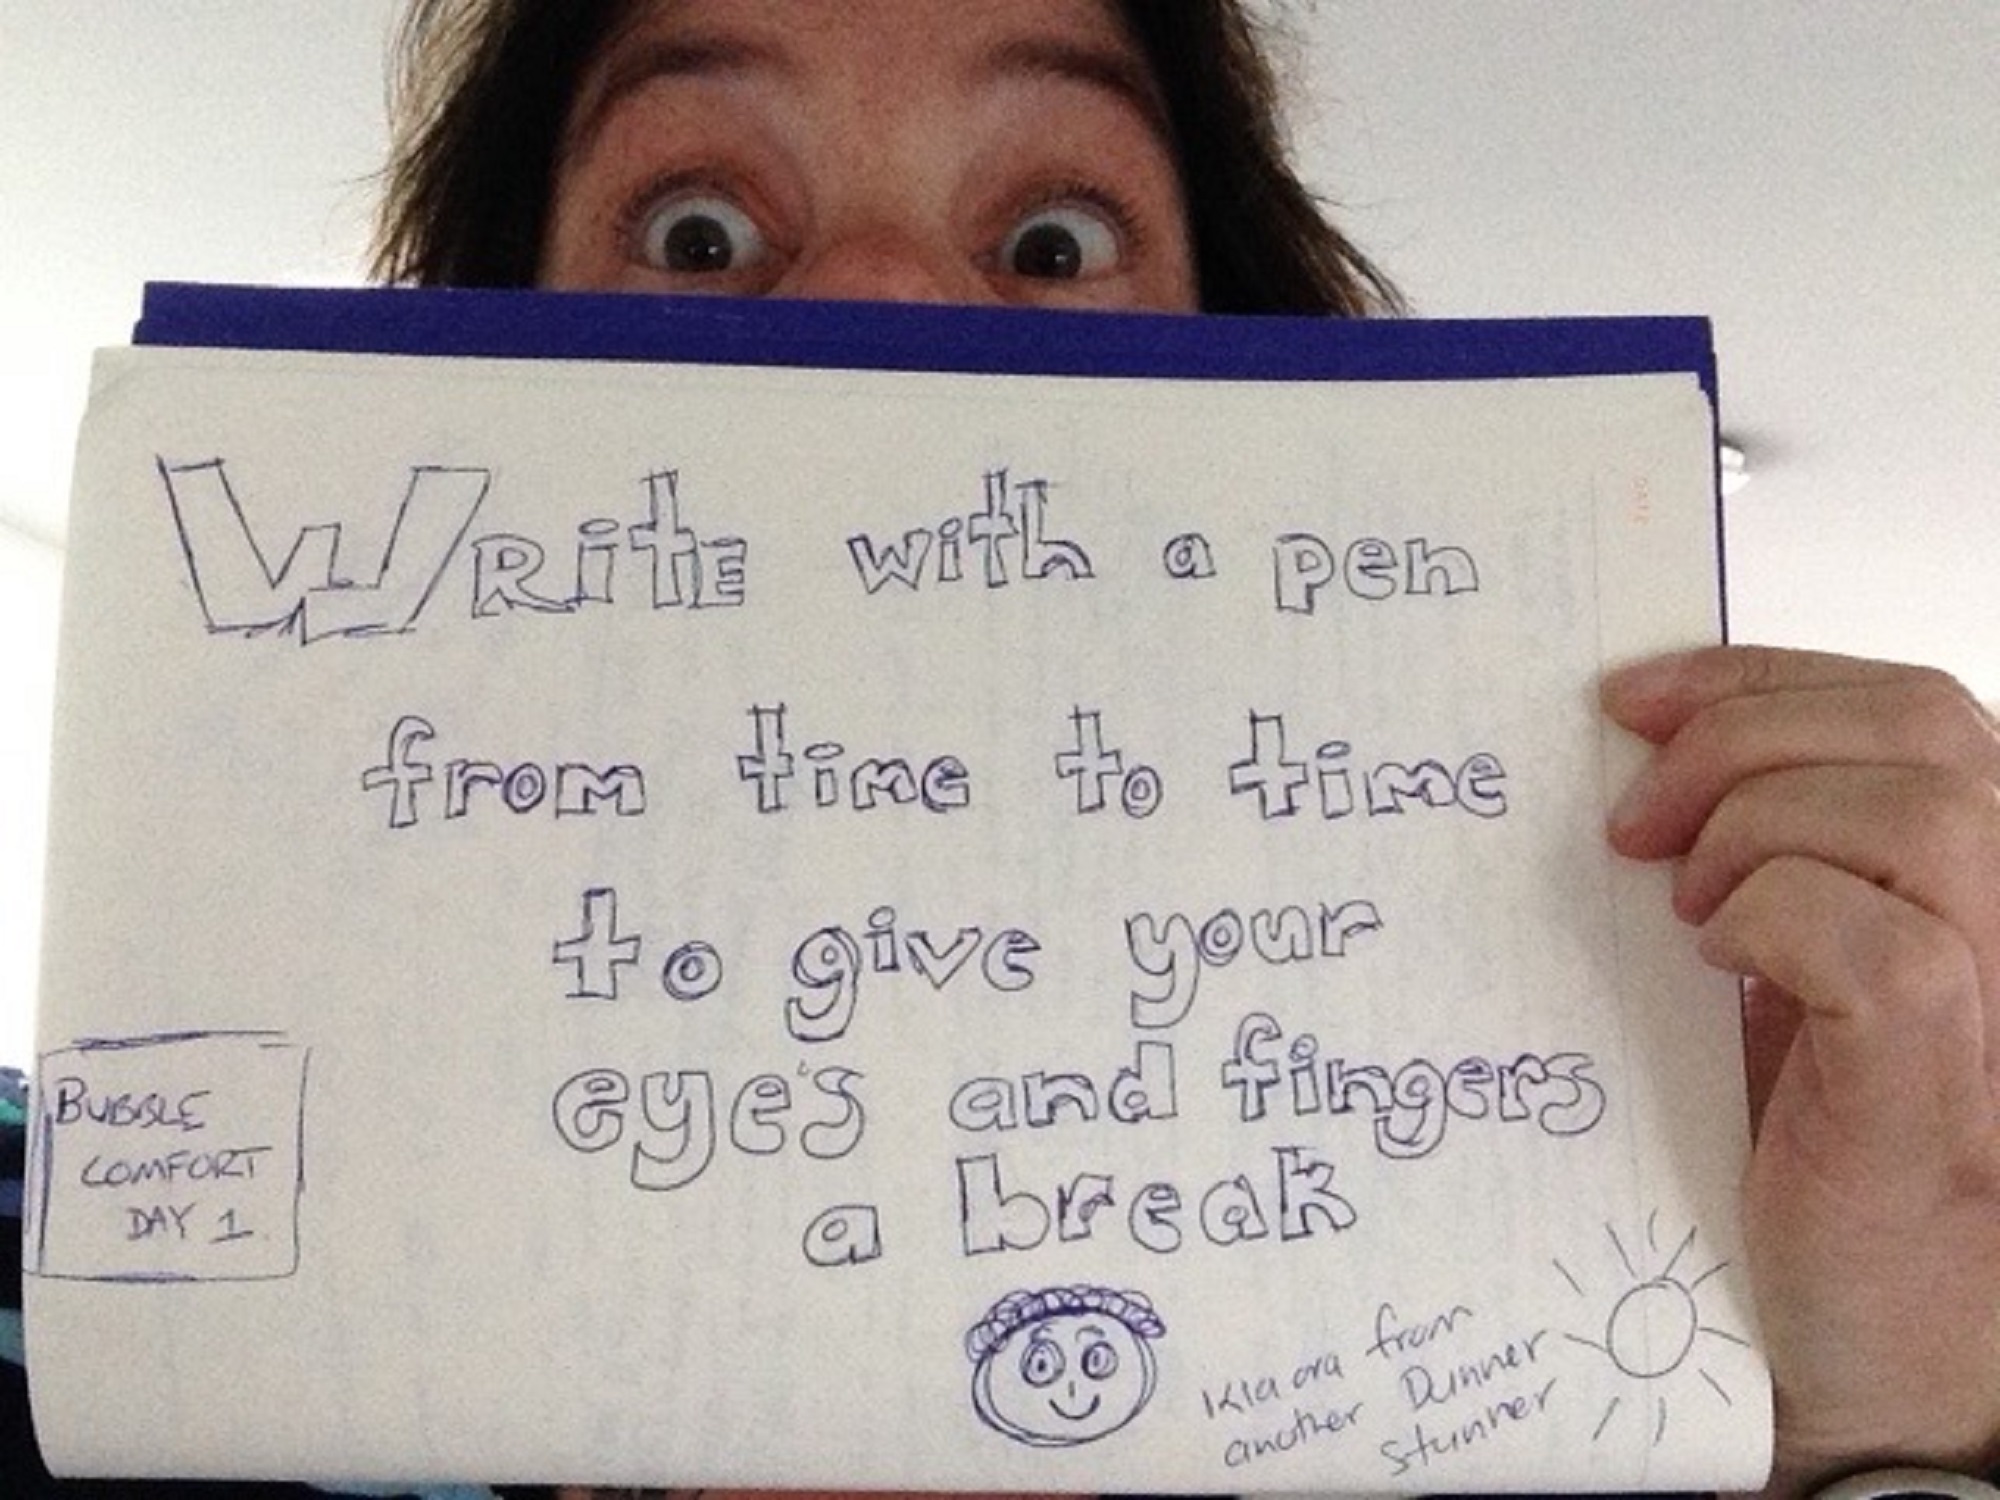 WRITE with a pen
from time to time
to give your
eye's and fingers
a break
BUBBLE
COMFORT
DAY 1
Kia ora from
another Dunner
stunner
DATE